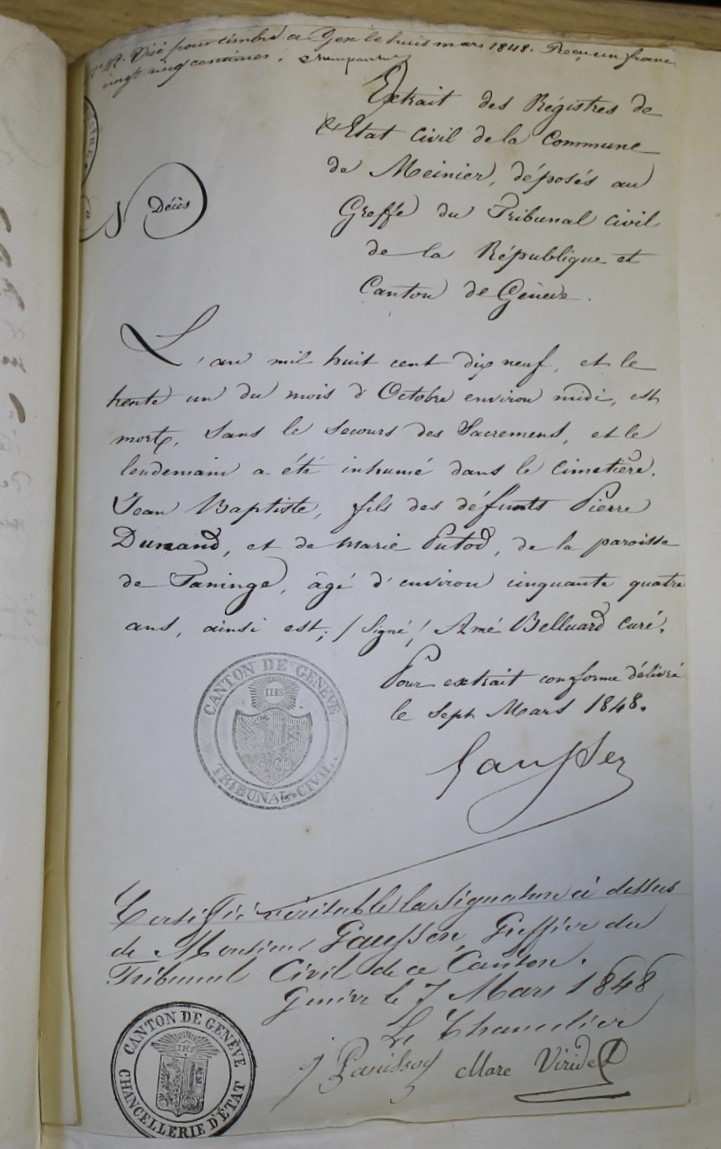 Visé pour timbre a Gex le huit mars 1848. Reçu un franc
vingt cinq centimes.
Extrait des Régistres de
l'Etat Civil de la Commune
de Meinier, déposés au
Greffe du Tribunal civil
de la République et
Canton de Genève.
Décès
L'an mil huit cent dix neuf, et le
trente un du mois d'Octobre environ midi, est
mort, sans le secours des Sacremens, et le
lendemain a été inhumé dans le Cimetière,
Jean Baptiste, fils des défunts Pierre
Dunand, et de marie Putod, de la paroisse
de Taninge, âgé d'environ cinquante quatre
ans, ainsi est; / Signé / Amé Belluard curé.
Pour extrait conforme délivré
le Sept Mars 1848.
Gaussen
CANTON DE GENÈVE
TRIBUNAL CIVIL
Certifié véritable la signature ci dessus
de Monsieur Gaussen Greffier du
Tribunal Civil de ce Canton.
Genève le 7 Mars 1848
Le Chancelier
Marc Viridet
CANTON DE GENÈVE
CHANCELLERIE D'ÉTAT